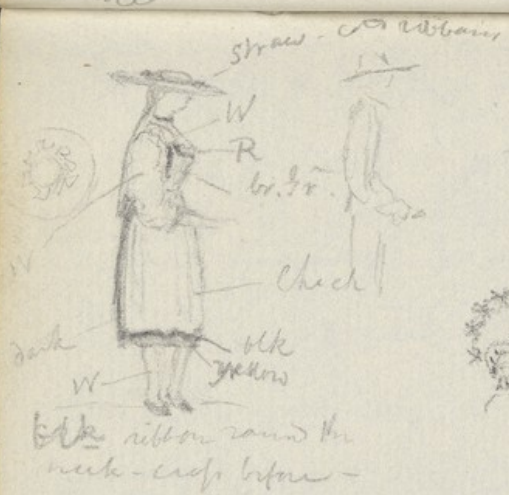 straw - ribbons
W
R
br. Gr.
W
Check
dark
blk
yellow
W
blk ribbon round the
neck - before -